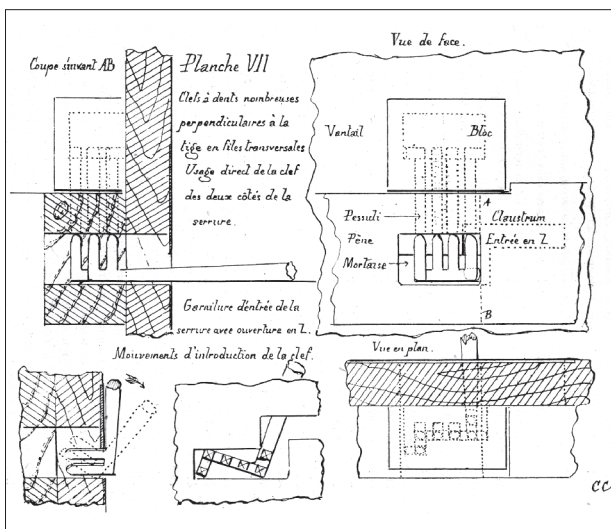 Planche VII
Coupe suivant AB
Clefs à dents nombreuses
perpendiculaires à la
tige en files transversales
Usage direct de la clef
des deux côtés de la
serrure.
Garniture d'entrée de la
serrure avec ouverture en Z.
Mouvements d'introduction de la clef.
Vue de face.
Vantail
Bloc
A
Pessuli
Claustrum
Pène
Entrée en Z
Mortaise
B
Vue en plan.
CC